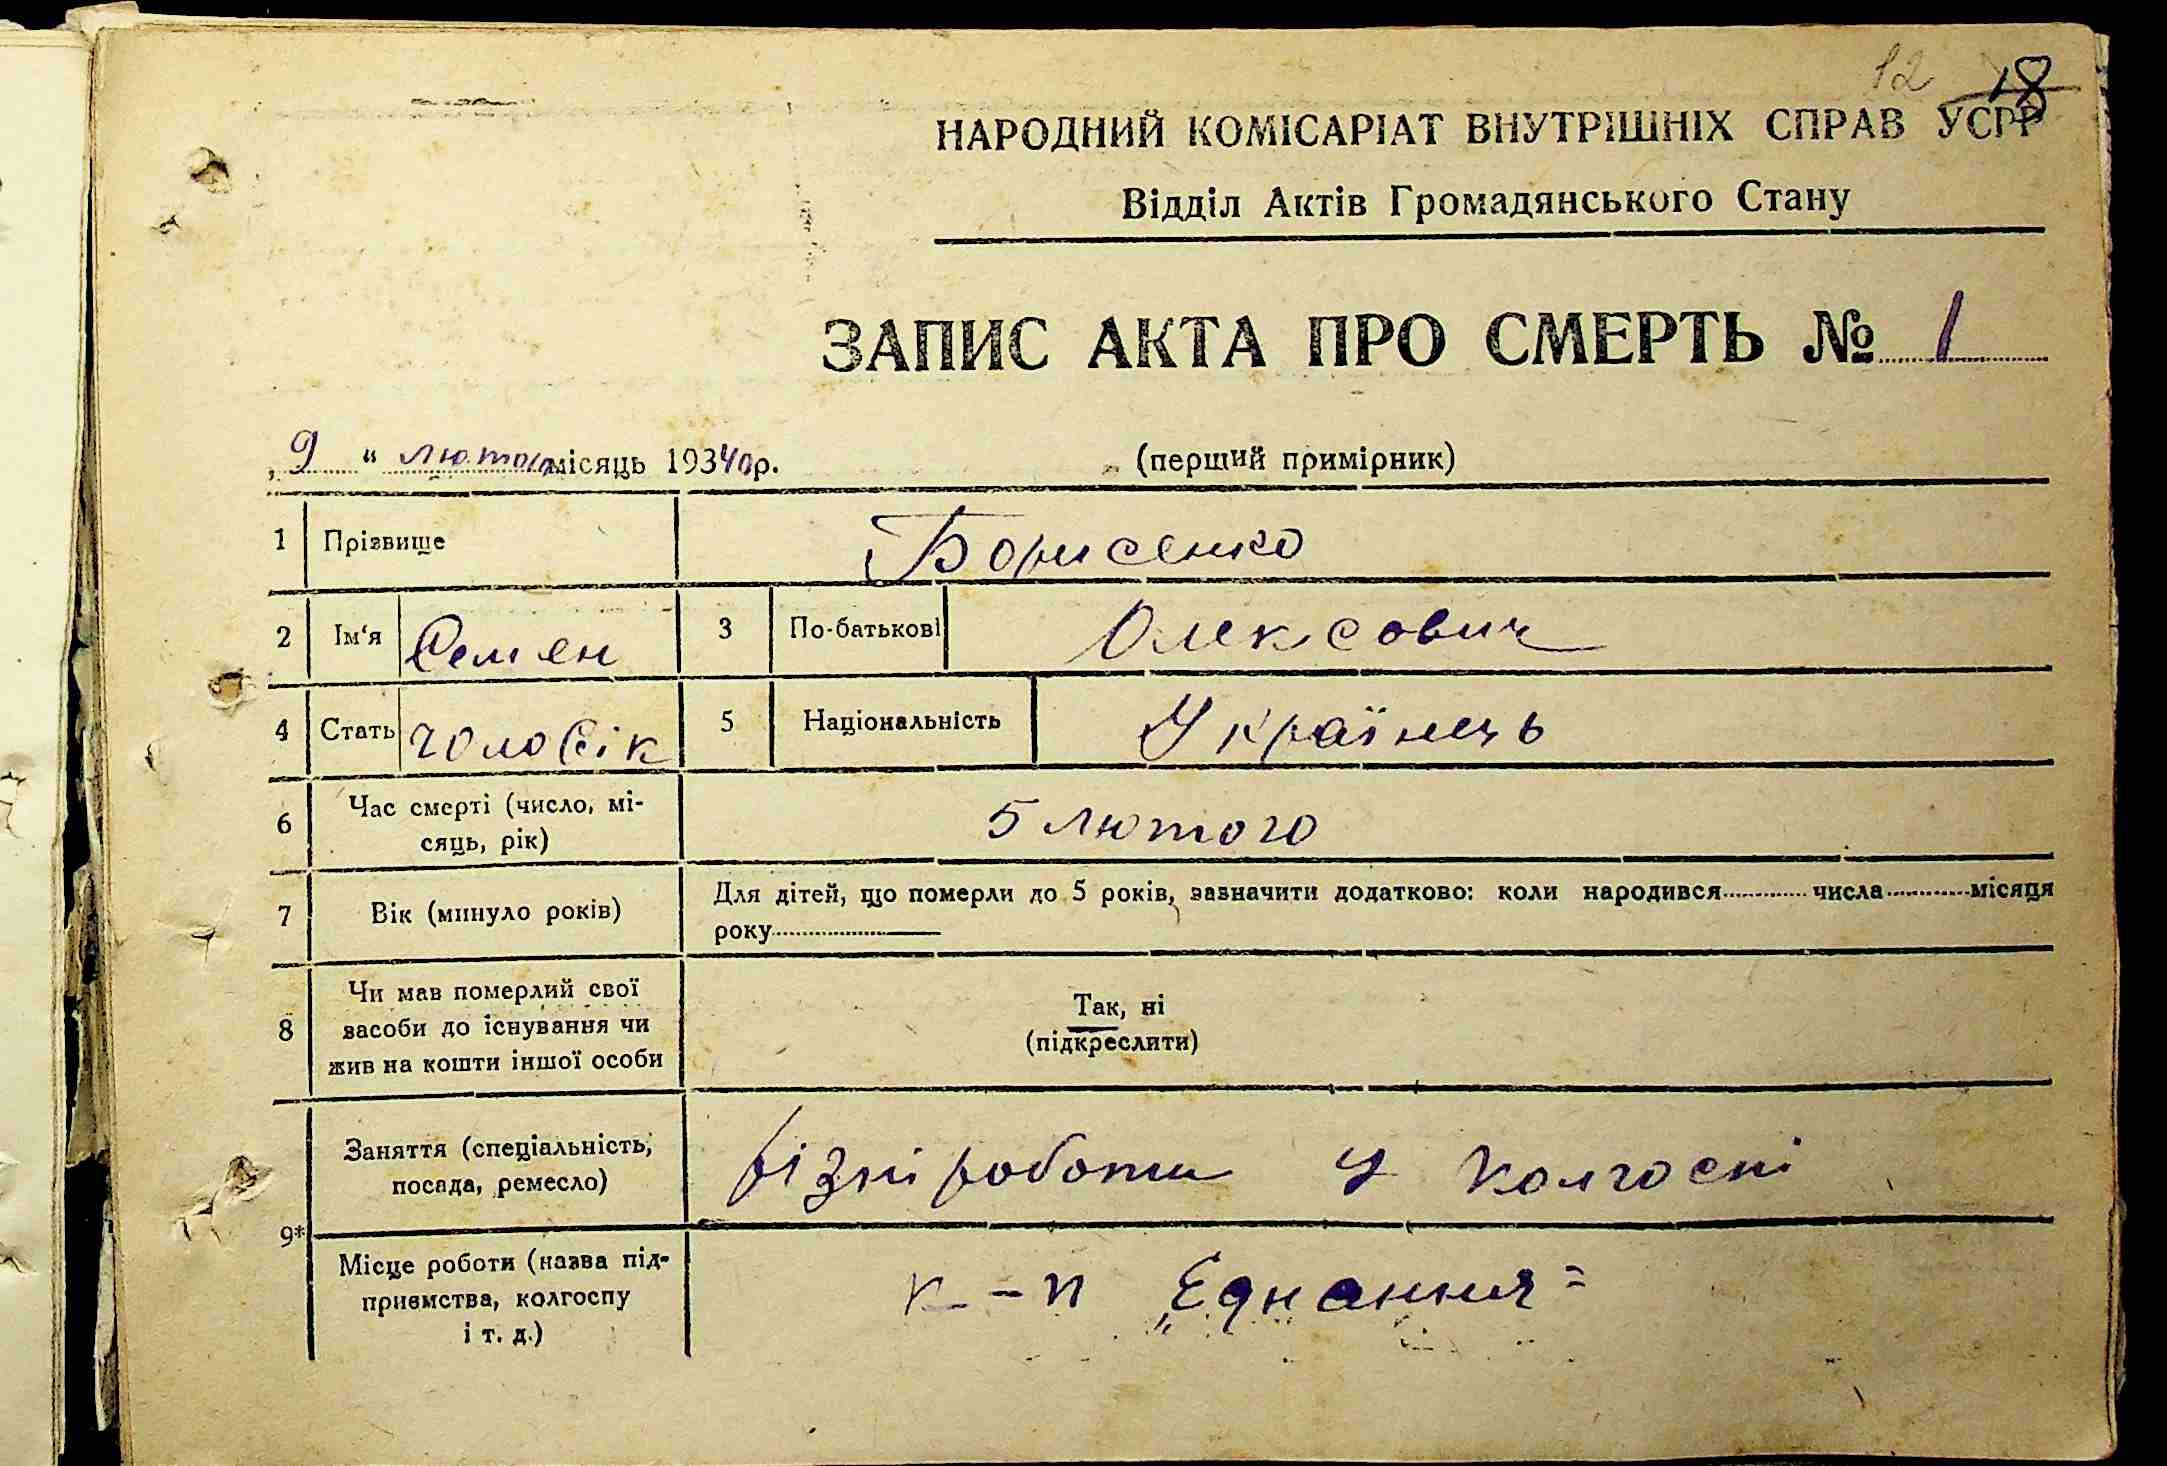 12 18
НАРОДНИЙ КОМІСАРІАТ ВНУТРІШНІХ СПРАВ УСРР
Відділ Актів Громадянського Стану
ЗАПИС АКТА ПРО СМЕРТЬ № 1
„ 9 “ лютого місяць 19340 р. (перший примірник)
1 Прізвище Борисенко
2 Ім‘я Семен 3 По-батькові Олексович
4 Стать чоловік 5 Національність Українець
6 Час смерті (число, мі-
сяць, рік) 5 лютого
7 Вік (минуло років) Для дітей, що померли до 5 років, зазначити додатково: коли народився числа місяця
року
8 Чи мав померлий свої
засоби до існування чи
жив на кошти іншої особи
Так, ні
(підкреслити)
9* Заняття (спеціальність,
посада, ремесло) різні роботи у колгоспі
Місце роботи (назва під-
приємства, колгоспу
і т. д.)
к-п „Еднання"